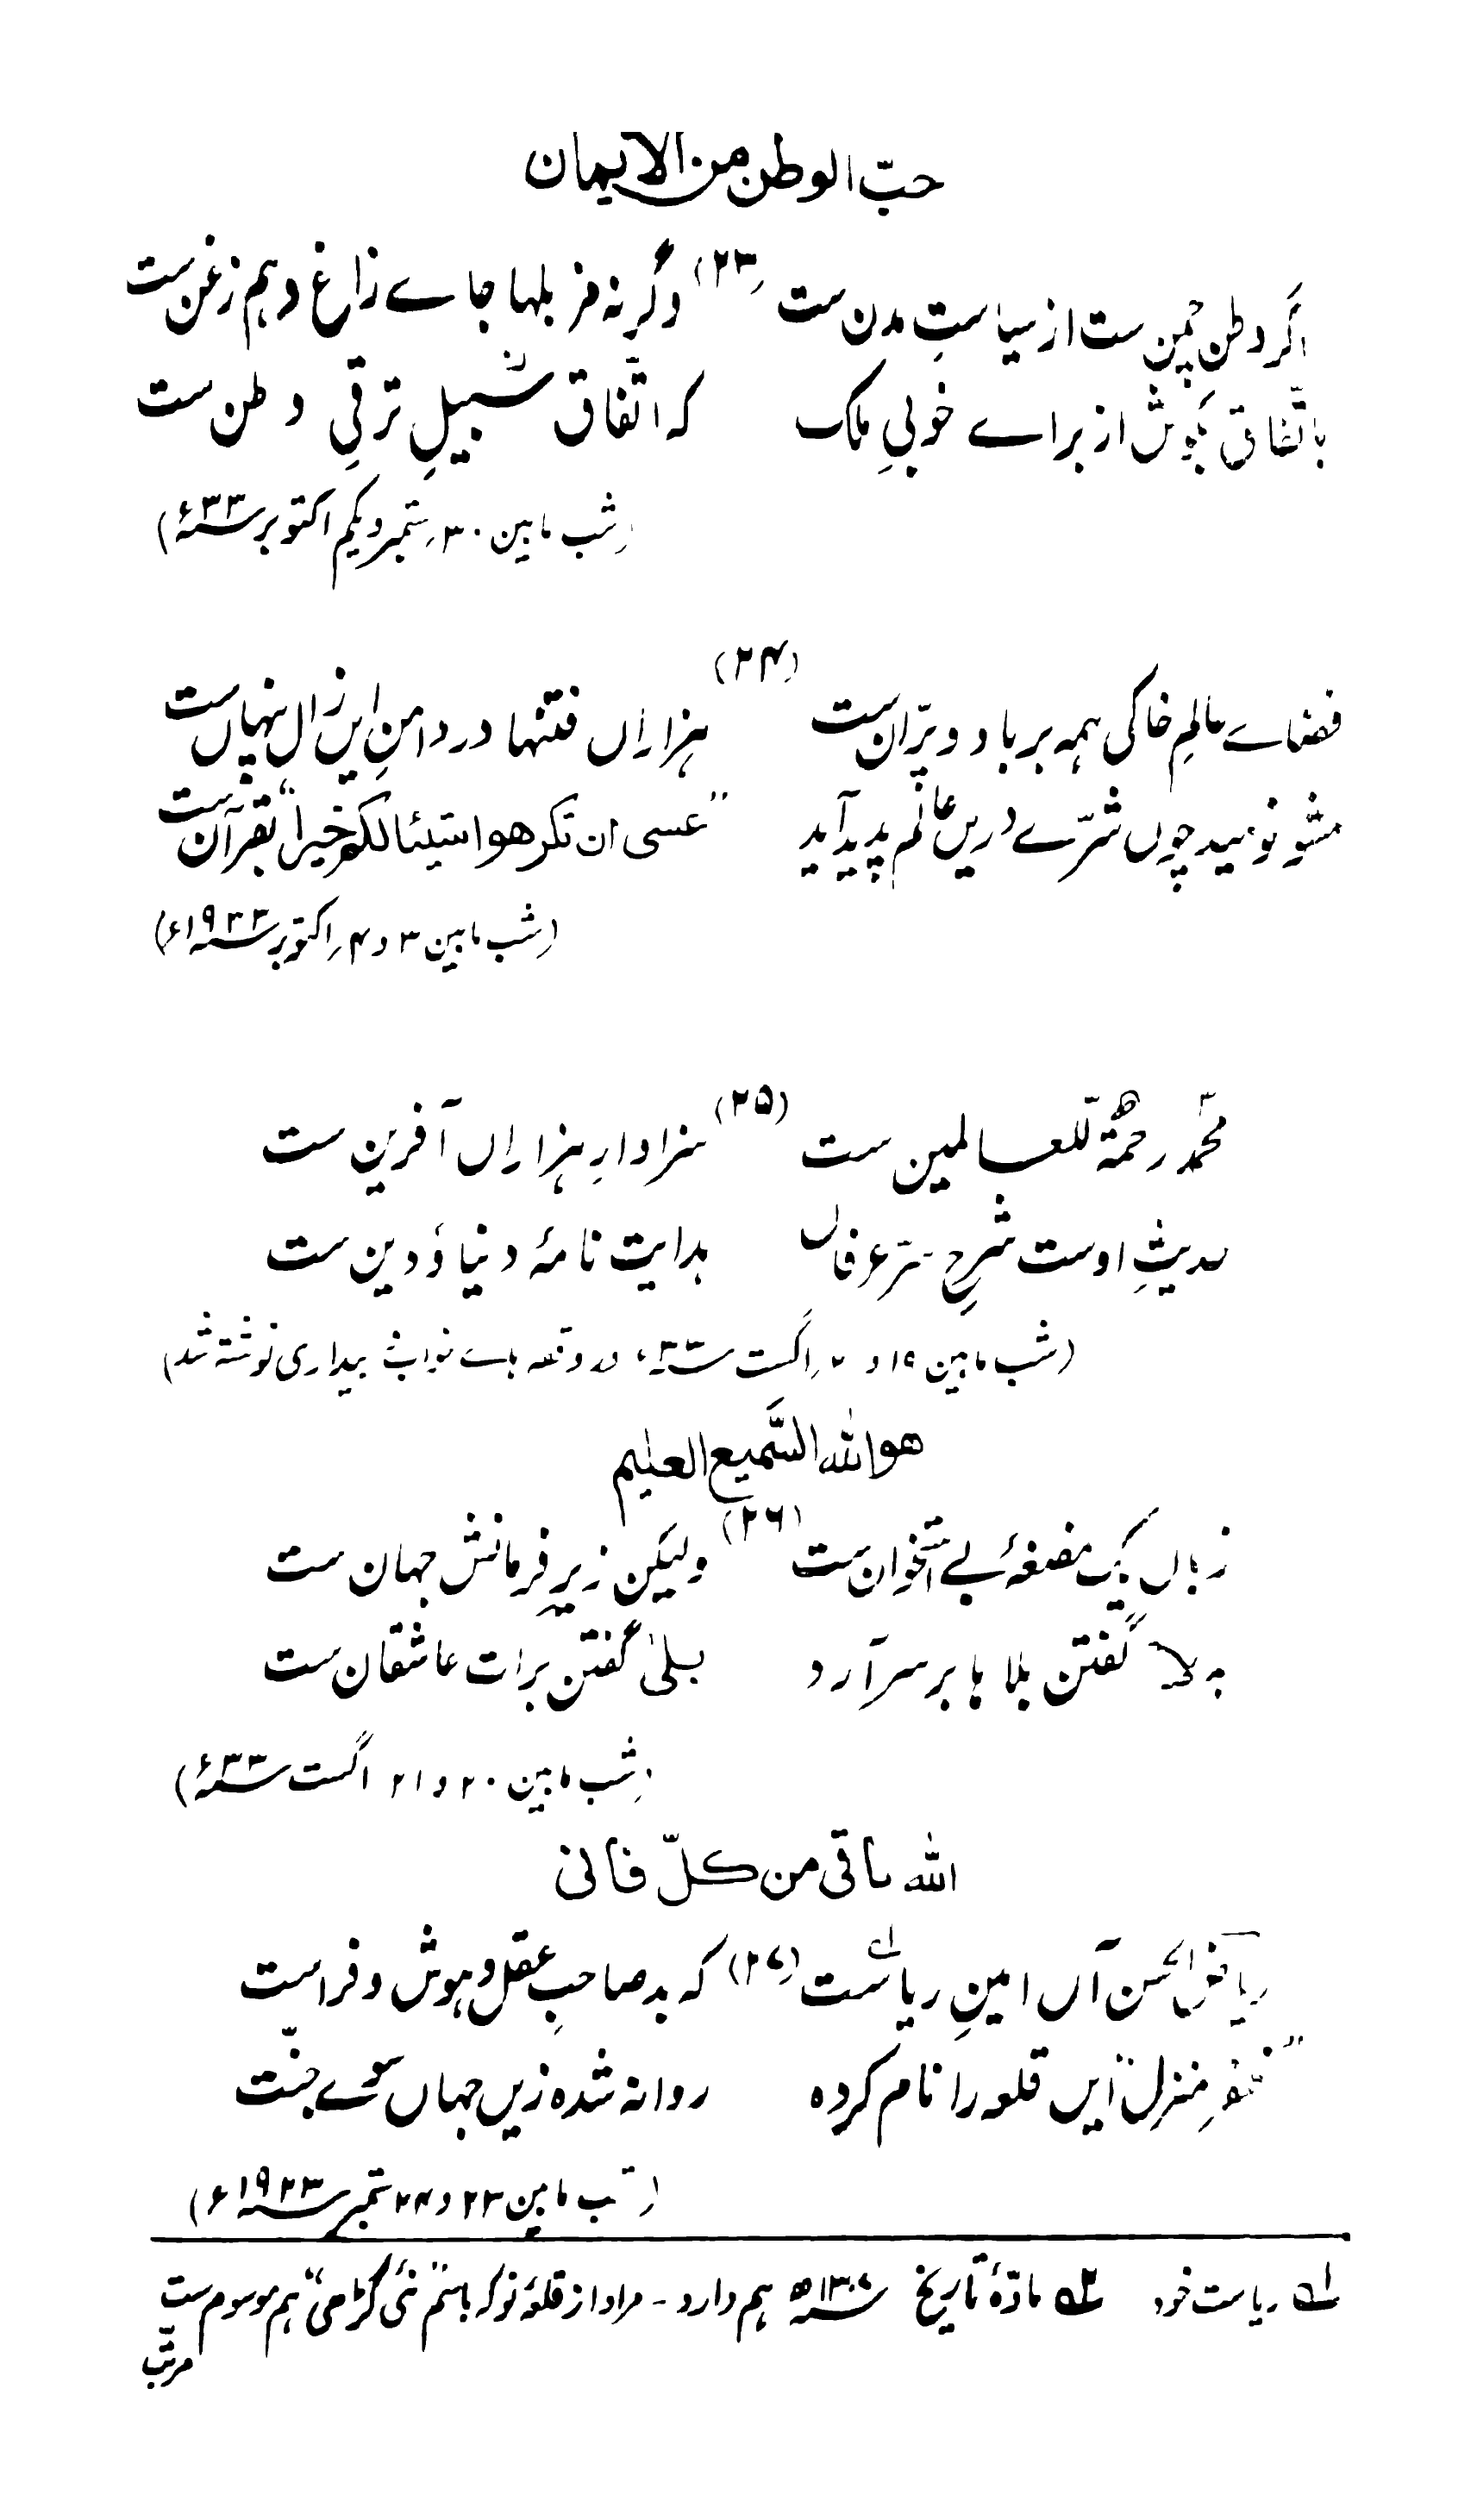 حبّ الوطن من الایمان
(۲۳)
اگر وطن چمن ست از سیاستِ مدن ست وگرنه مزبلہا جاے زاغ و ہم زغن ست
باتفاق بکوش از براے خوبیِ ملک که اتّفاق سبیلِ ترقّیِ وطن ست
(شب مابین ۳۰ ستمبر و یکم اکتوبر ۳۳ء)
(۲۴)
فضاے عالمِ خاکی ہمه برباد و ویران ست ہزاراں فتنہا در دامنِ ایں زال پنہاں ست
مشو نومید چوں شرّے دریں عالم پدید آید "عسی ان تکرهوا شیئا لکم خیرا" بقرآن ست
(شب مابین ۳ و ۴ اکتوبر ۱۹۳۳ء)
(۲۵)
محمّد رحمةٌ للعالمین ست سزاوارِ ہزاراں آفرین ست
حدیثِ اوست شرحِ سرّ عرفاں ہدایت نامۂ دنیا و دین ست
(شب مابین ۱۹ و ۲۰ اگست ۳۳ء، در وقفه ہاے خواب بیداری نوشته شد)
هو الله السّمیع العلیم
(۲۶)
زباں یک مضغۂ بے استخوان ست ولیکن زیر فرمانش جہان ست
به لا گفتن بلاہا بر سر آرد بلیٰ گفتن برات عاشقان ست
(شب مابین ۲۰ و ۲۱ اگست ۳۳ء)
الله باقی من کلّ فانی
(۲۷)
ریاض الحسن آں امینِ ریاست که بد صاحبِ عقل و ہوش و فراست
منزل" ایں قلعه را نام کرده روانه شده زیں جہاں سوے جنّت
(شب مابین ۲۳ و ۲۴ ستمبر ۱۹۳۳ء)
۱ ریاست خود ۲ مادّۂ تاریخ ہم دارد - مراد از قلعۂ نو که باسم "نئی گڑھی" ہم موسوم ست
مرتّب